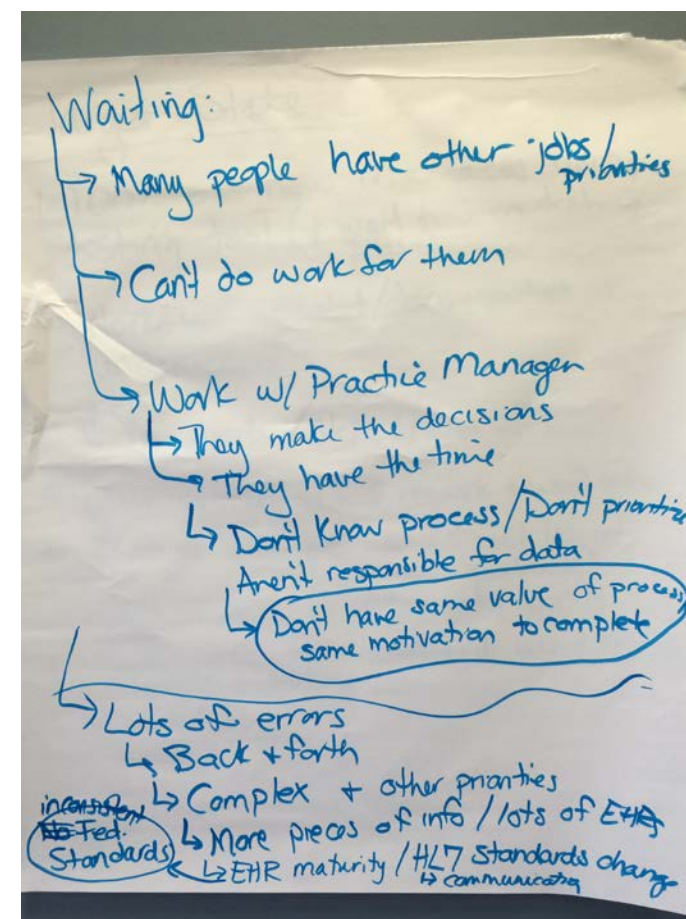 Waiting:
→ Many people have other jobs/
priorities
→ Can't do work for them
→ Work w/ Practice Manager
→ They make the decisions
→ They have the time
↳ Don't know process/Don't prioritize
Aren't responsible for data
↳ Don't have same value of process,
same motivation to complete
→ Lots of errors
↳ Back + forth
↳ Complex + other priorities
↳ More pieces of info / lots of EHRs
inconsistent
No Fed.
Standards
↳ EHR maturity / HL7 standards change
↳ communicating